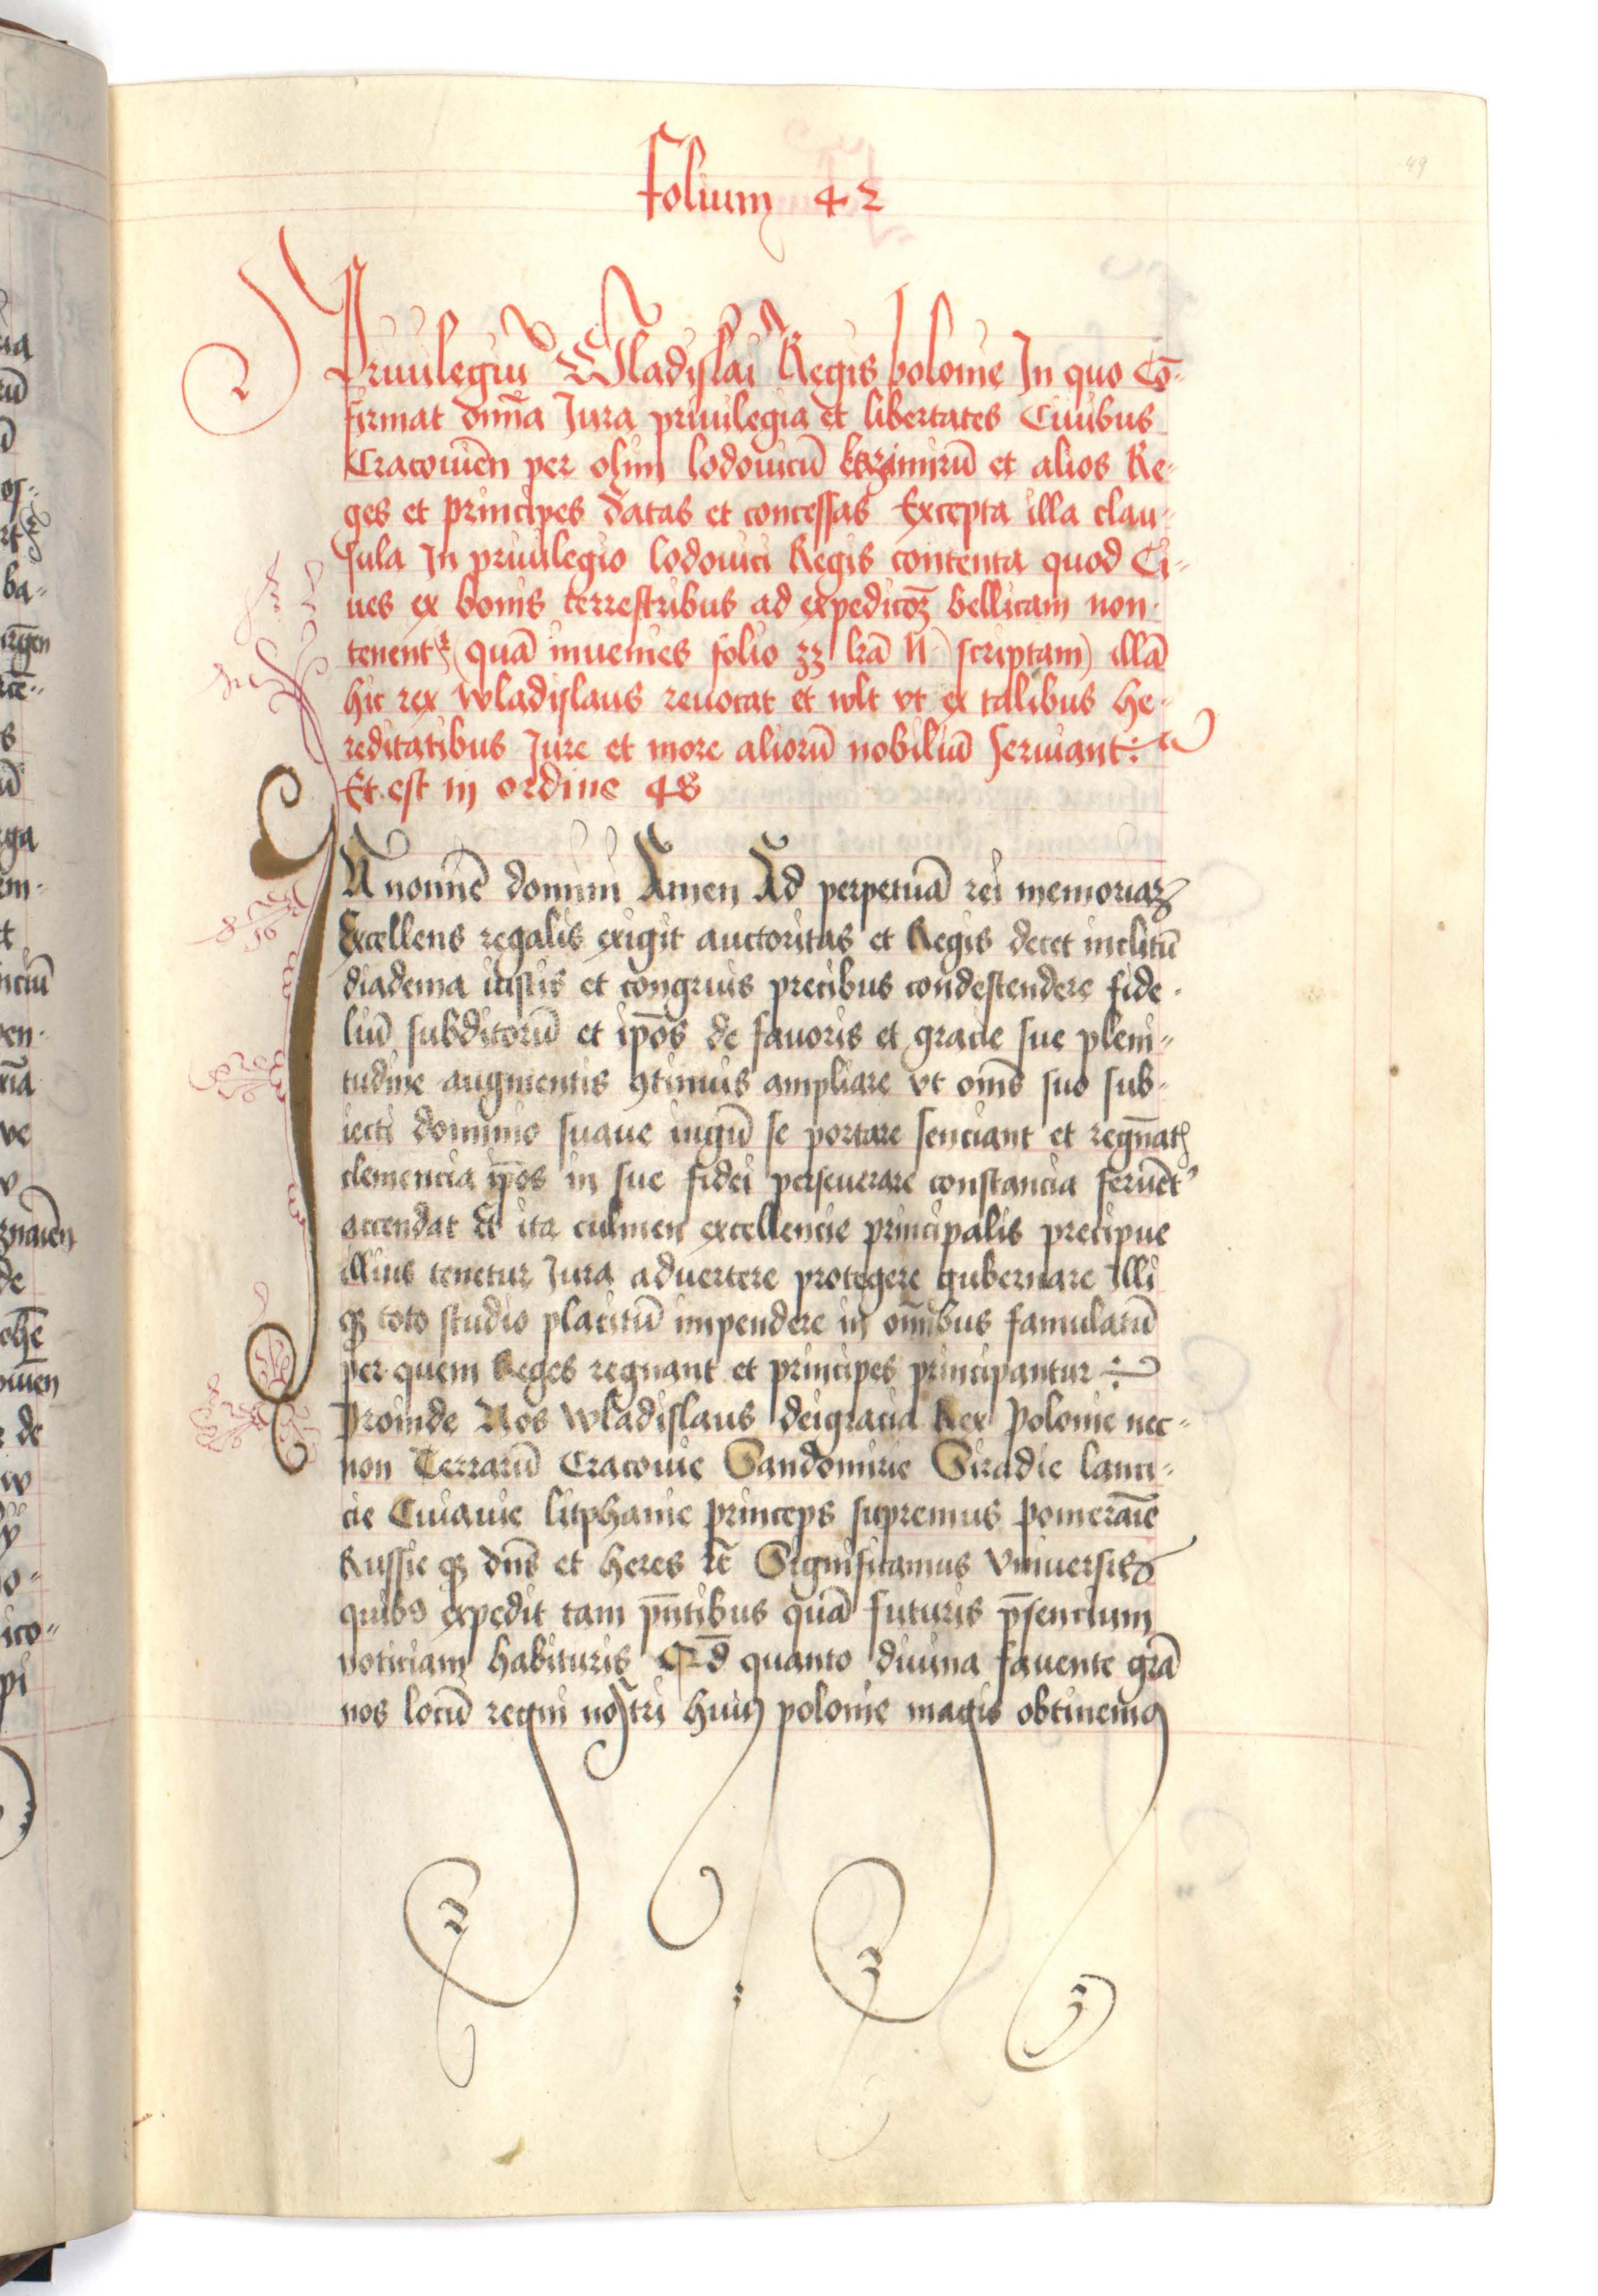 folium 42
49
Priuilegiu Wladislai Regis polonie In quo Cō-
firmat omīa Jura priuilegia et libertates Ciuibus
Cracouieñ per olim lodouicū kazimirū et alios Re-
ges et principes datas et concessas Excepta illa clau-
sula In priuilegio lodouici Regis contenta quod Ci-
ues ex bonis terrestribus ad expedicōꝫ bellicam non
tenentꝛ (quā inuenies folio 33 lrā h scriptam) illā
hic rex wladislaus reuocat et wlt vt ex talibus he-
reditatibus Jure et more aliorū nobiliū seruiant:
Et est in ordine 48
IN nomīe domini Amen Ad perpetuā rei memoriaꝫ
Excellens regalis exigit auctoritas et Regis decet inclitū
diadema iustis et congruis precibus condescendere fide-
liū subditorū et ip̄os de fauoris et gracie sue pleni-
tudine augmentis ꝯtinuis ampliare vt om̄s suo sub-
iecti dominio suaue iugū se portare senciant et regnāt
clemencia ip̄os in sue fidei perseuerare constancia feruēt
accendat Et ita culmen excellencie principalis precipue
illius tenetur Jura aduertere protegere gubernare Illi
qꝫ toto studio placitū impendere in om̄ibus famulatū
per quem Reges regnant et principes principantur
Proinde Nos wladislaus deigracia Rex Polonie nec-
non Terrarū Cracouie Sandomirie Siradie lanci-
cie Cuiauie litphanie princeps supremus pomeraīe
Russie qꝫ dn̄s et heres ꝛc̄ Significamus Vniuersis
quibꝰ expedit tam pn̄tibus quā futuris p̄sencium
noticiam habituris Qd̄ quanto diuina fauente grā
nos locū regni nostri huiꝰ polonie magis obtinemꝰ